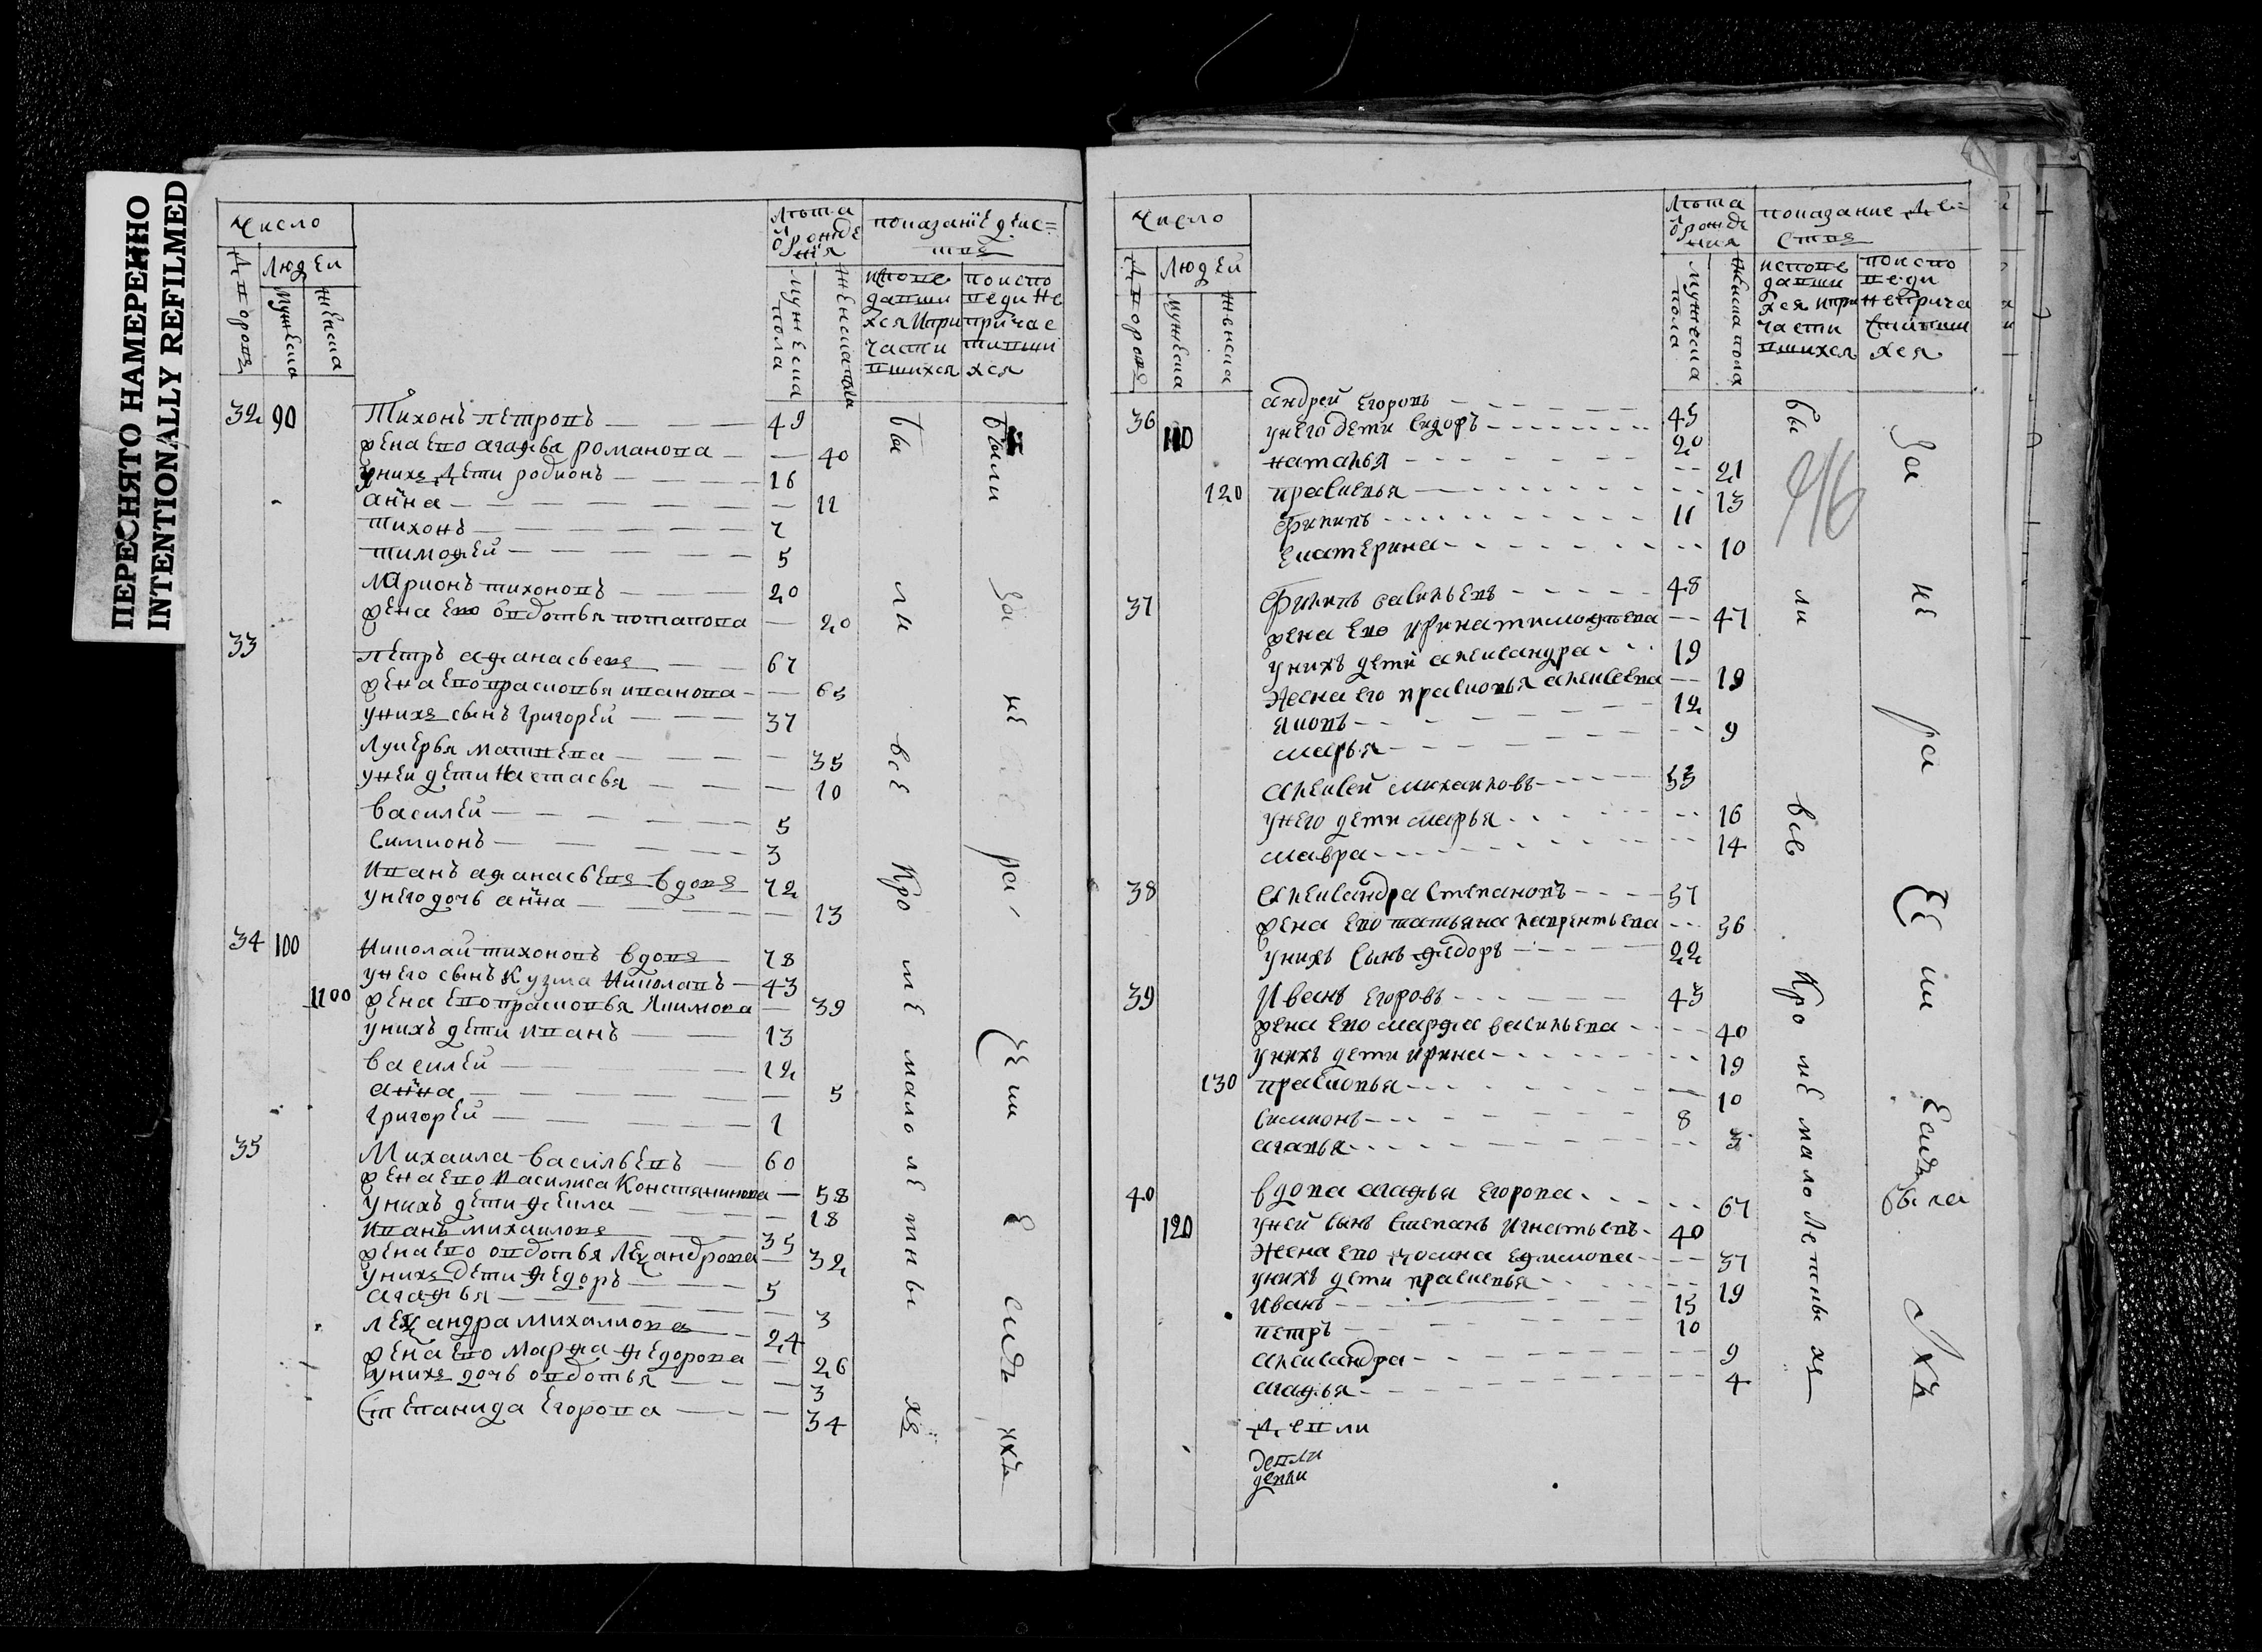 ПЕРЕСНЯТО НАМЕРЕННО
INTENTIONALLY REFILMED
Число
Людей
мужеска
женска
Лѣта
ѿ рожде
нїя
мужеска пола
женска пола
показанїе дѣис=
твъ
испове
давши
хся и при
части
вшихся
по испо
веди не
причас
тивши
хся
32 90 Тихонъ петровъ 49
жена ево агафья романова 40
у нихъ дети родионъ 16
анна 11
тихонъ 7
тимофей 5
Ларионъ тихоновъ 20
жена ево овдотья потапова 20
33
петръ афанасьевъ 67
жена ево прасковья иванова 65
у нихъ сынъ григорей 37
Лукерья матвеева 35
у ней дети настасья 10
василей 5
Симионъ 3
иванъ афанасьевъ вдовъ 72
у него дочь анна 13
34 100 николай тихоновъ вдовъ 78
у него сынъ Кузма николаевъ 43
1100 жена ево прасковья якимова 39
у нихъ дети иванъ 13
василей 12
анна 5
Григорей 1
35 Михаила васильевъ 60
жена ево василиса Констянинова 58
у нихъ дети фекла 18
иванъ михаиловъ 35
жена ево овдотья Леѯандрова 32
у нихъ дети федоръ 5
агафья 3
леѯандра михаиловъ 24
жена ево марфа федорова 26
у нихъ дочь овдотья 3
Степанида Егорова 34
бы ли все Кро ме мало ле тны хъ
были за не ра Сеи е
Число
Людей
мужеска
женска
Лѣта
ѿ рожде
ния
мужеска пола
женска пола
показание дѣи=
ствъ
испове
давши
хся и при
части
вшихся
по испо
веди
не прича
стивши
хся
36 андрей Егоровъ 45
110 у него дети сидоръ 20
наталья 21
120 прасковья 13
филипъ 11
екатерина 10
37 филипъ васильевъ 48
жена ево ирина тимофеева 47
у нихъ дети александра 19
жена его прасковья алексеева 19
яковъ 12
марья 9
алексей михаиловъ 53
у него дети марья 16
мавра 14
38 александра степановъ 57
жена ево татьяна лаврентьева 56
у нихъ сынъ федоръ 22
39 Иванъ Егоровъ 43
жена ево марфа васильева 40
у нихъ дети ирина 19
130 прасковья 10
симионъ 8
агафья 3
40 вдова агафья Егорова 67
120 у ней сынъ степанъ игнатьевъ 40
жена ево Ефимова 37
у нихъ дети прасковья 19
иванъ 15
петръ 10
александра 9
агафья 4
девли
девли
девли
бы ли все Кро ме мало Летны хъ
за не ра Сеи